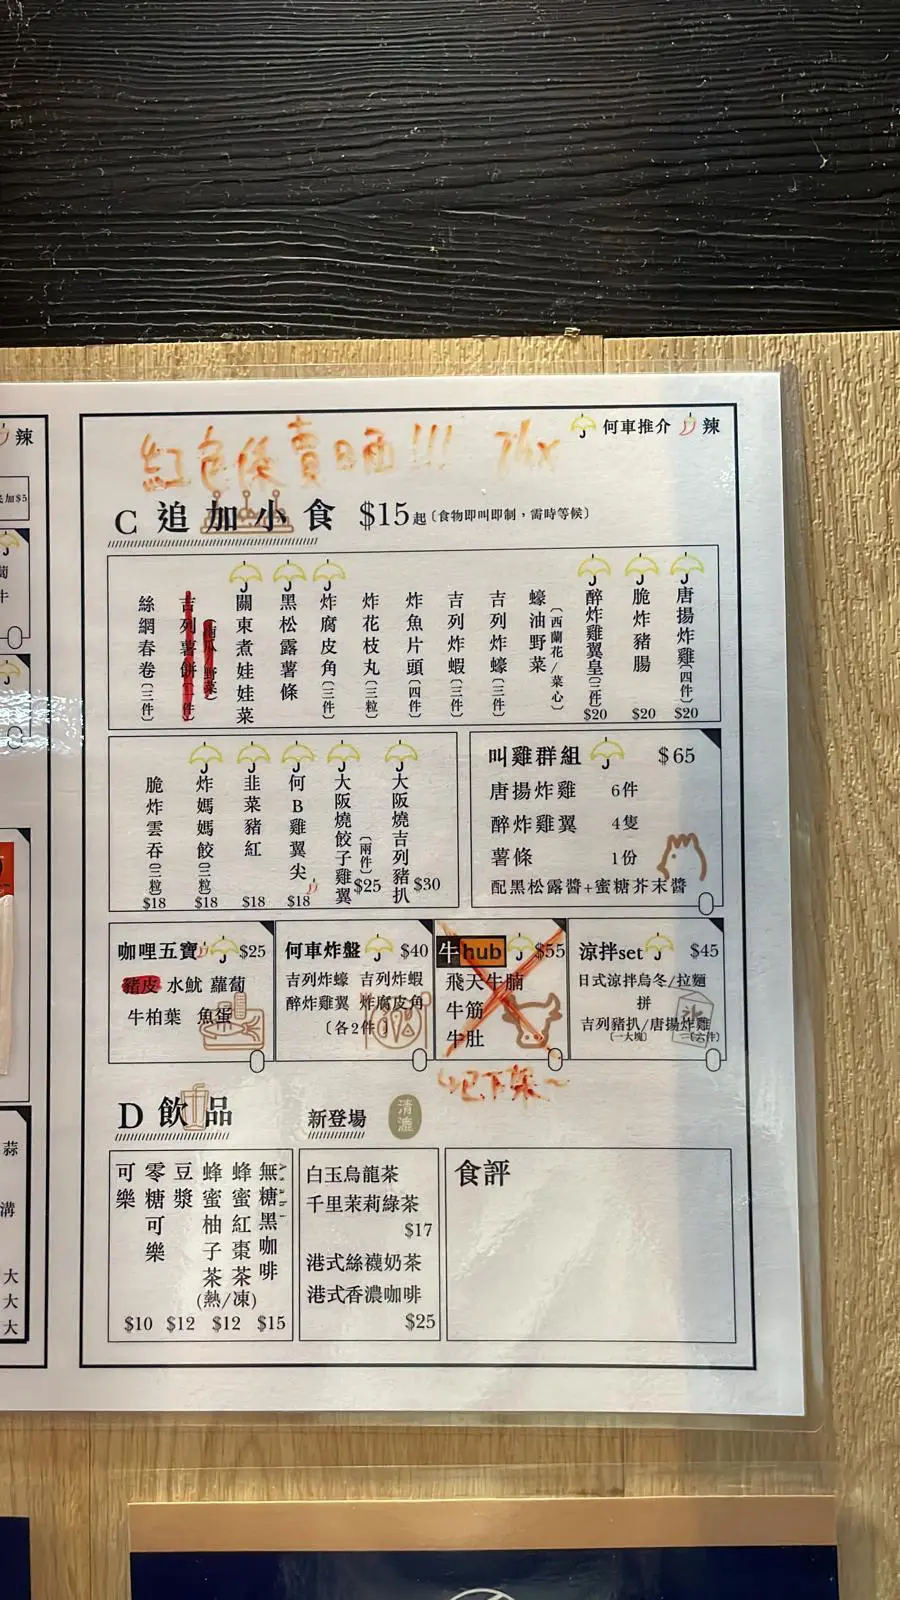 辣
加$5
紅色係賣晒!!! Thx
何車推介 辣
C 追加小食 $15起(食物即叫即制,需時等候)
唐揚炸雞(四件) $20
脆炸豬腸 $20
醉炸雞翼皇(三件) $20
蠔油野菜(西蘭花/菜心)
吉列炸蠔(三件)
吉列炸蝦(三件)
炸魚片頭(四件)
炸花枝丸(三粒)
炸腐皮角(三件)
黑松露薯條
關東煮娃娃菜
吉列薯餅(二件)(南瓜/野菜)
絲網春卷(三件)
大阪燒吉列豬扒 $30
大阪燒餃子雞翼(兩件) $25
何B雞翼尖 $18
韭菜豬紅 $18
炸媽媽餃(三粒) $18
脆炸雲吞(三粒) $18
叫雞群組 $65
唐揚炸雞 6件
醉炸雞翼 4隻
薯條 1份
配黑松露醬+蜜糖芥末醬
咖哩五寶 $25
豬皮 水魷 蘿蔔
牛柏葉 魚蛋
何車炸盤 $40
吉列炸蠔 吉列炸蝦
醉炸雞翼 炸腐皮角
(各2件)
牛hub $55
飛天牛腩
牛筋
牛肚
涼拌set $45
日式涼拌烏冬/拉麵
拼
吉列豬扒/唐揚炸雞
(一大塊) (六件)
冰
下架~
D 飲品
無糖黑咖啡 $15
蜂蜜紅棗茶
蜂蜜柚子茶
(熱/凍) $12
豆漿 $12
零糖可樂
可樂 $10
新登場
清滙
白玉烏龍茶
千里茉莉綠茶
$17
港式絲襪奶茶
港式香濃咖啡
$25
食評
蒜
溝
大
大
大